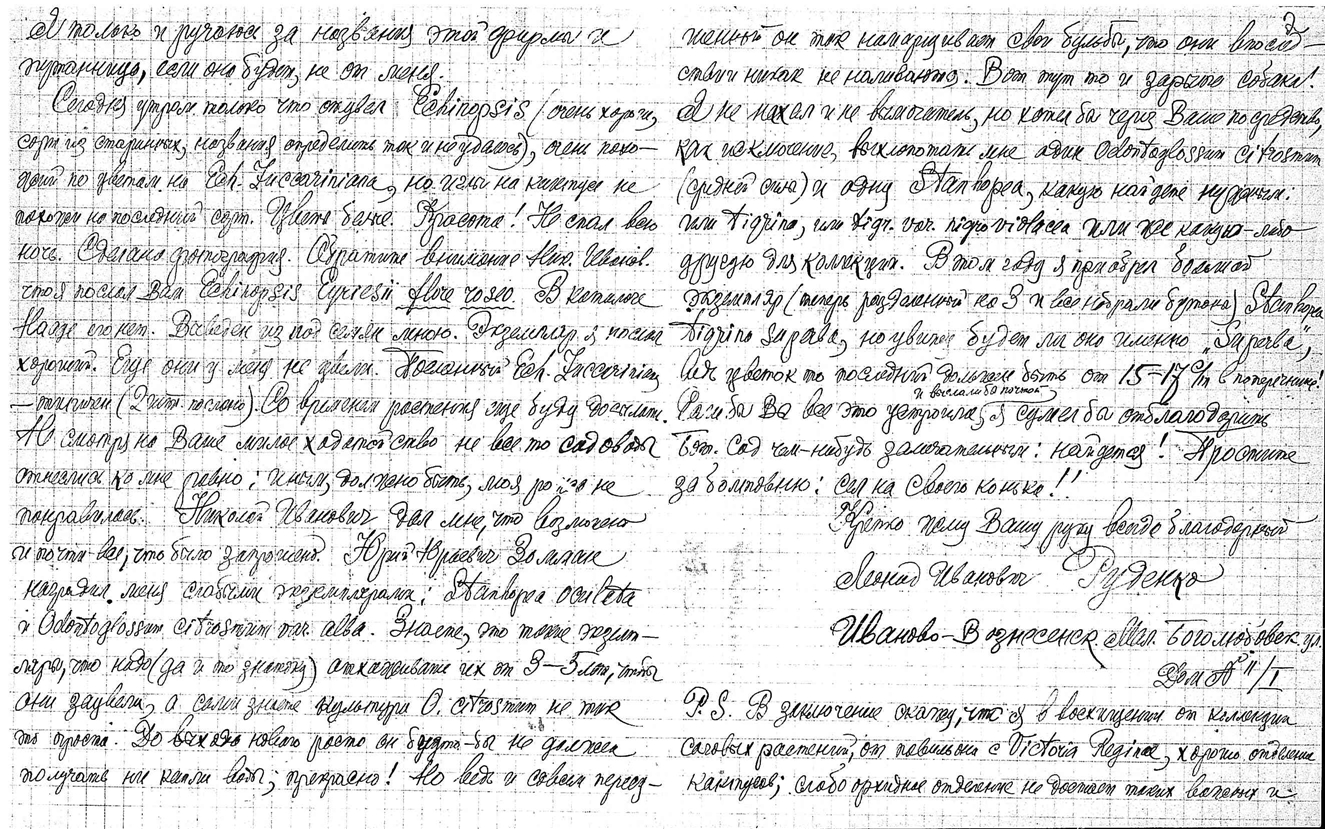 Я только и ручаюсь за названия этой фирмы и
путаница, если она будет, не от меня.
Сегодня утром только что отцвел Echinopsis (очень хорош,
сорт из старинных, названия определить так и не удалось), очень похо-
жий по цветам на Ech. Zuccariniana, но иглы на кактусе не
похожи на последний сорт. Цветы белые. Красота! Не спал всю
ночь. Сделана фотография. Обратите внимание Ник. Иванов.
что я послал Вам Echinopsis Eyriesii flore roseo. В каталоге
Нааде его нет. Выведен из под семян мною. Экземпляр я послал
хороший. Еще они у меня не цвели. Посланный Ech. Zuccarinian
— типичен (2 шт. послано). Со временем растения еще буду досылать.
Не смотря на Ваше милое ходатайство не все то садоводы
отнеслись ко мне равно: иным, должно быть, моя не
понравилась. Николай Иванович дал мне, что возможно
и почти все, что было запрошено. Юрий Юрьевич Золман
наградил меня слабыми экземплярами: Stanhopea oculata
и Odontoglossum citrosmum var. alba. Знаете, это такие экзем-
пляры, что надо (да и то знатоку) отхаживать их от 3—5 лет, чтобы
они зацвели, а сами знаете культура O. citrosmum не так
то проста. До выхода нового роста он будто-бы не должен
получать ни капли воды; прекрасно! Но ведь и совсем перес-
2
шенный он так наморщивает свои бульбы, что они впослед-
ствии никак не наливаются. Вот тут то и зарыта собака!
Я не нахал и не вымогатель, но хотел бы через Ваше посредство,
как исключение, выхлопотать мне один Odontoglossum Citrosmum
(средней силы) и одну Stanhopea, какую найдете нужным:
или tigrina, или tigr. var. nigroviolacea или же какую-либо
другую для коллекции. В том году я приобрел большой
экземпляр (теперь разделенный на 3 и все набрали бутоны) Stanhopea
tigrina Superba, но увижу будет ли она именно „Superba",
ведь цветок то последний должен быть от 15–17 c/m в поперечнике!
и выслали бы почтой
Если бы Вы все это устроили, я сумел бы отблагодарить
Бот. Сад чем-нибудь замечательным: найдется! Простите
за болтовню: сел на своего конька!!
Крепко жму Вашу руку всегда благодарный
Леонид Иванович Руденко
Иваново-Вознесенск. Мал. Боголюбовск. ул.
Дом № 11/I
P.S. В заключение скажу, что я в восхищении от коллекции
саговых растений, от павильона с Victoria Regina, хорошо отделение
кактусов; слабо орхидное отделение не достает таких важных и